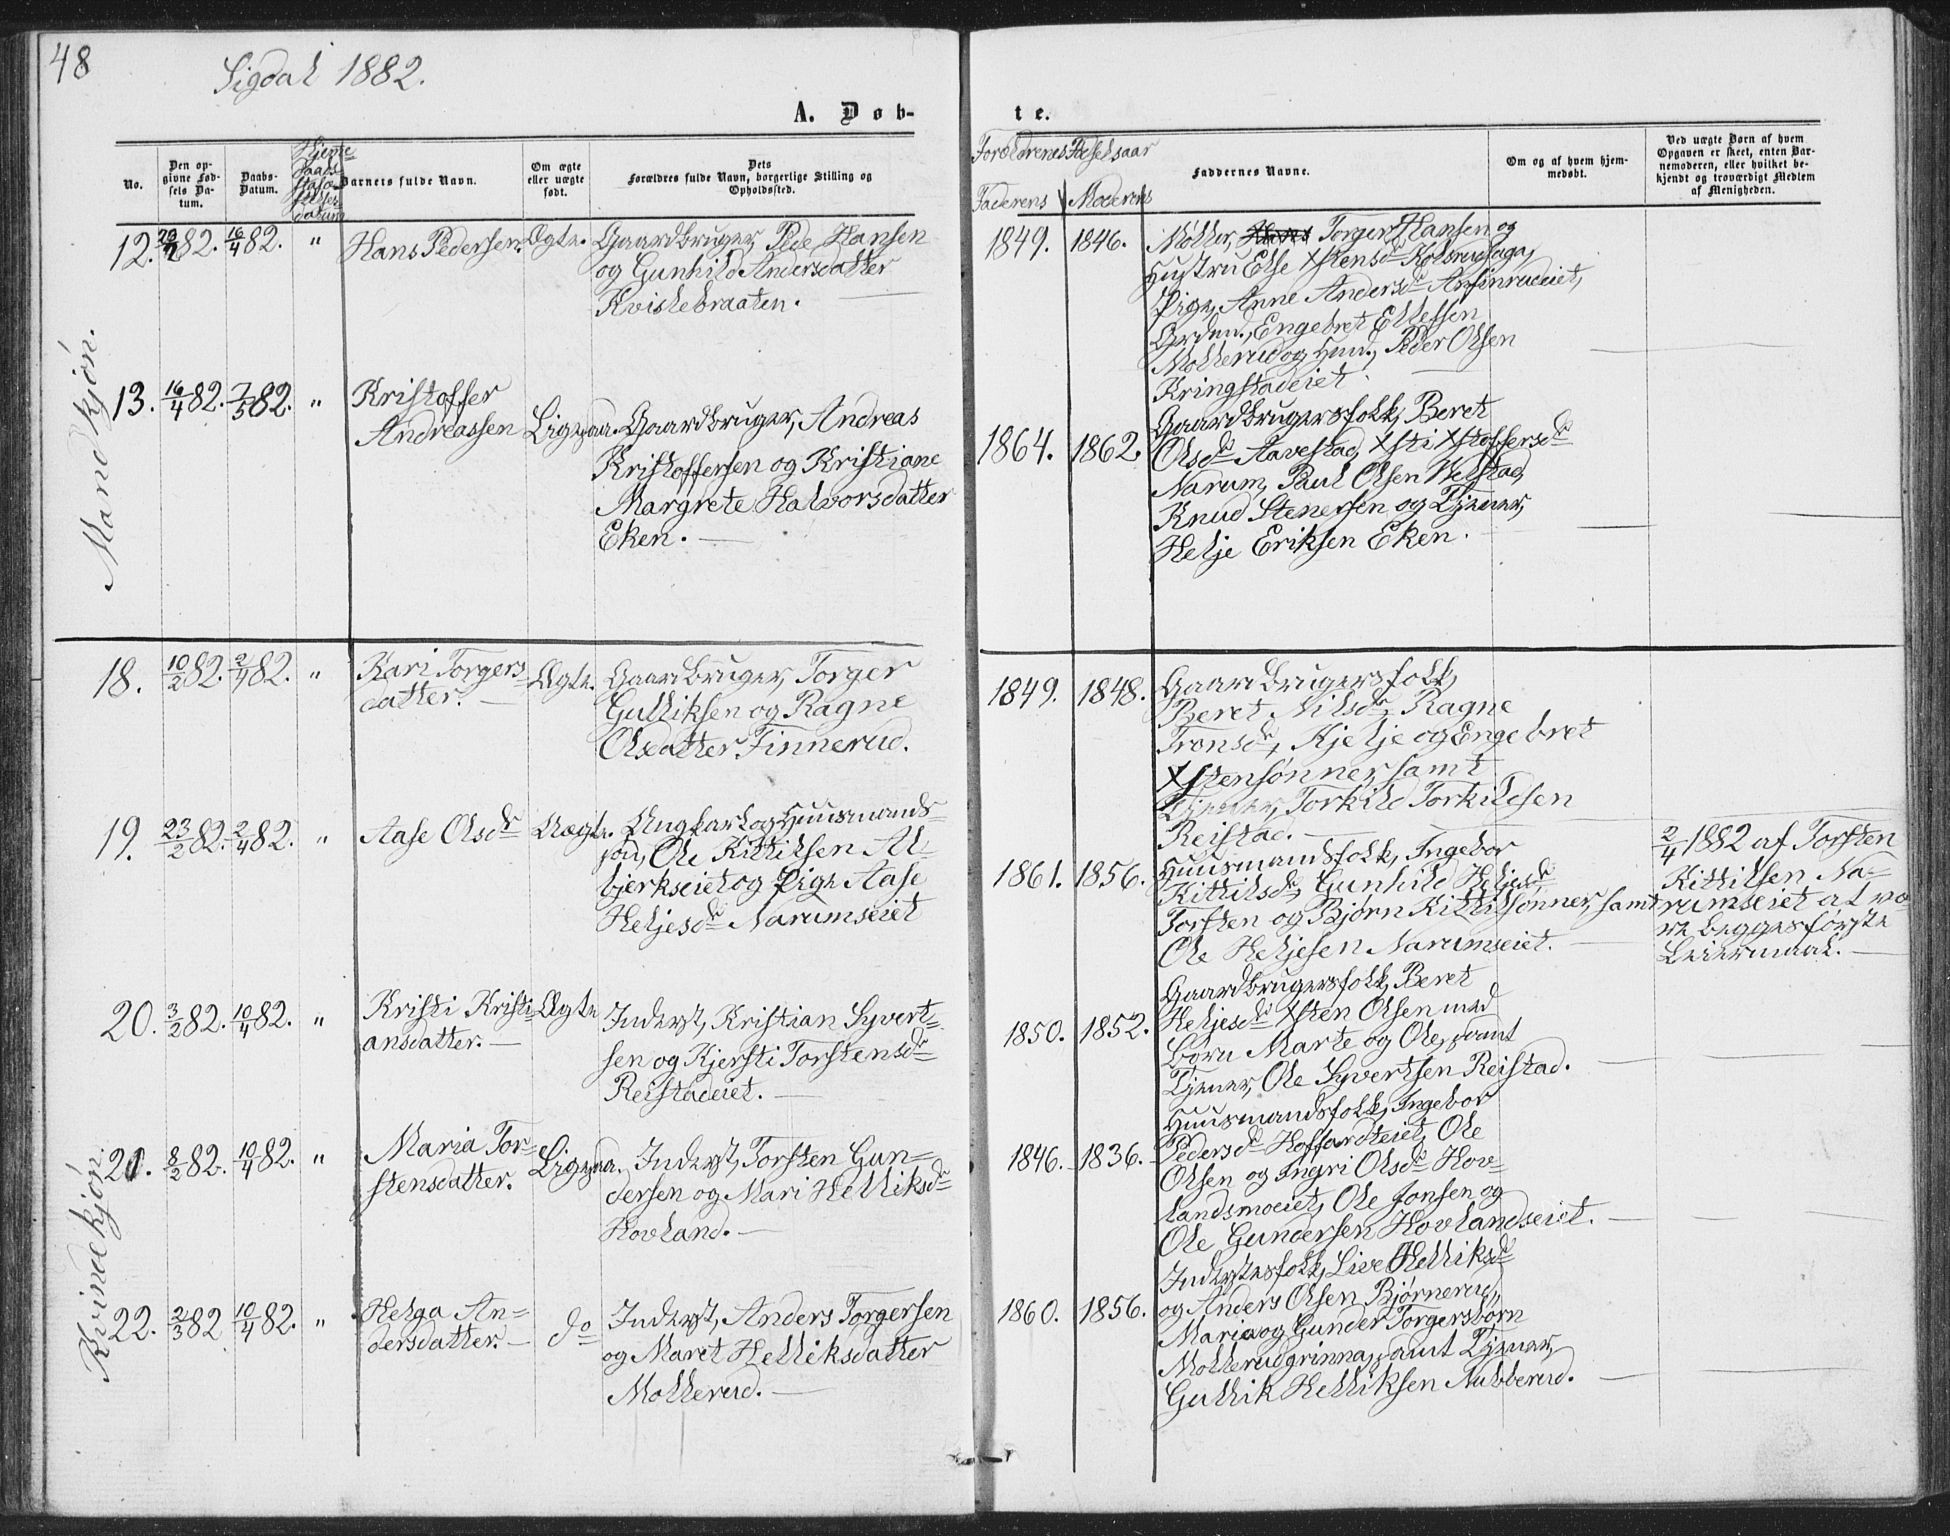 48
Sigdal 1882.
A. Døb-
te.
No.
Den op-
givne Fød-
sels Da-
tum.
Daabs-
Datum.
Hjemme-
daabs
Stadfæ-
stelses-
datum
Barnets fulde Navn.
Om ægte
eller uægte
født.
Dets
Forældres fulde Navn, borgerlige Stilling og
Opholdssted.
Forældrenes Fødselsaar
Faderens
Moderens
Faddernes Navne.
Om og af hvem hjem-
medøbt.
Ved uægte Børn af hvem
Opgaven er skeet, enten Bar-
nemoderen, eller hvilket be-
kjendt og troværdigt Medlem
af Menigheden.
Mandkjøn.
12. 82. 16/4 82. " Hans Pedersen. Ægte. Gaardbruger, Peder Hansen
og Gunhild Andersdatter
Kvislebraaten.
1849. 1846. Møller, Torger Hansen og
Hustru Else Xstensdr Kolsrudsaga,
Pige, Anne Andersdr Anfinrudeiet,
Engebret Ellefsen
Mollerud og Peder Olsen
Kringstadeiet.
13. 16/4 82. 7/5 82. " Kristoffer
Andreassen Ligesaa. Gaardbruger, Andreas
Kristoffersen og Kristiane
Margrete Halvorsdatter
Eken.
1864. 1862. Gaardbrugersfolk, Beret
Olsdr Aavestad, Xsti Xstoffersdr
Narum, Paul Olsen Velstad,
Knud Stenersen og Tjener,
Helje Eriksen Eken.
Kvindekjøn.
18. 10/2 82. 2/4 82. " Kari Torgers-
datter. Ægte. Gaardbruger, Torger
Gulliksen og Ragne
Olsdatter Finnerud.
1849. 1848. Gaardbrugersfolk,
Beret Nilsdr, Ragne
Tronsdr, Kjelje og Engebret
Xstensønner, samt
Tjener, Torkild Torkildsen
Reistad.
19. 23/2 82. 2/4 82. " Aase Olsdr Uægte. Ungkarl og Huusmands-
søn, Ole Kittilsen Al-
bjerkseiet og Pige Aase
Heljesdr Narumseiet
1861. 1856. Huusmandsfolk, Ingebor
Kittilsdr, Gunhild Heljesdr
Torsten og Bjørn Kittilsønner, samt
Ole Heljesen Narumseiet.
2/4 1882 af Torsten
Kittilsen Na-
rumseiet at væ-
re begges første
Leiermaal.
20. 3/2 82. 10/4 82. " Kristi Kristi-
ansdatter. Ægte Inderst, Kristian Syvert-
sen og Kjersti Torstensdr
Reistadeiet.
1850. 1852. Gaardbrugersfolk, Beret
Heljesdr Xsten Olsen med
Børn Marte og Ole, samt
Tjener, Ole Syvertsen Reistad.
21. 8/2 82. 10/4 82. " Maria Tor-
stensdatter. Ligesaa. Inderst, Torsten Gun-
dersen og Mari Helliksdr
Hovland.
1846. 1836. Huusmandsfolk, Ingebor
Pedersdr Hoffardteiet, Ole
Olsen og Ingri Olsdr Hov-
landsmoeiet, Ole Jonsen og
Ole Gundersen Hovlandseiet.
22. 2/3 82 10/4 82. " Helga An-
dersdatter. do Inderst, Anders Torgersen
og Maret Helliksdatter
Mollerud.
1860. 1856. Inderstesfolk, Live Helliksdr
og Anders Olsen Bjørnerud,
Maria og Gunder Torgersbørn
Mollerudgrinna, samt Tjener,
Gullik Helliksen Nubberud.